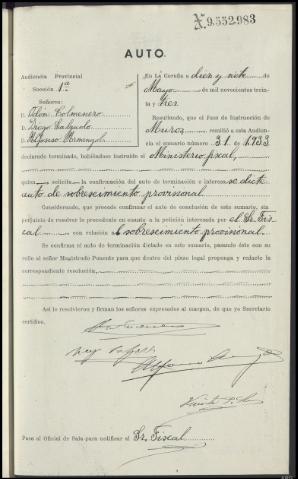 X-9.552.983
AUTO.
Audiencia Provincial
Sección 1ª
Señores:
D. Colmenero
D. Diego Salgado
D. Alfonso Armengol
En La Coruña a diez y siete de
Mayo de mil novecientos trein-
ta y tres
Resultando, que el Juzgado de Instrucción de
Muros remitió a esta Audien-
cia el sumario número 31 de 1933
declarado terminado, habiéndose instruido el Ministerio fiscal,
quien solicita la confirmación del auto de terminación e interesa se dicte
auto de sobreseimiento provisional.
Considerando, que procede confirmar el auto de conclusión de este sumario, sin
perjuicio de resolver lo procedente en cuanto a la petición interesada por el Sr. Fis-
cal con relación al sobreseimiento provisional.
Se confirma el auto de terminación dictado en este sumario, pasando éste con su
rollo al señor Magistrado Ponente para que dentro del plazo legal proponga y redacte la
correspondiente resolución,
Así lo resolvieron y firman los señores expresados al margen, de que yo Secretario
certifico.
Pase al Oficial de Sala para notificar al Sr. Fiscal